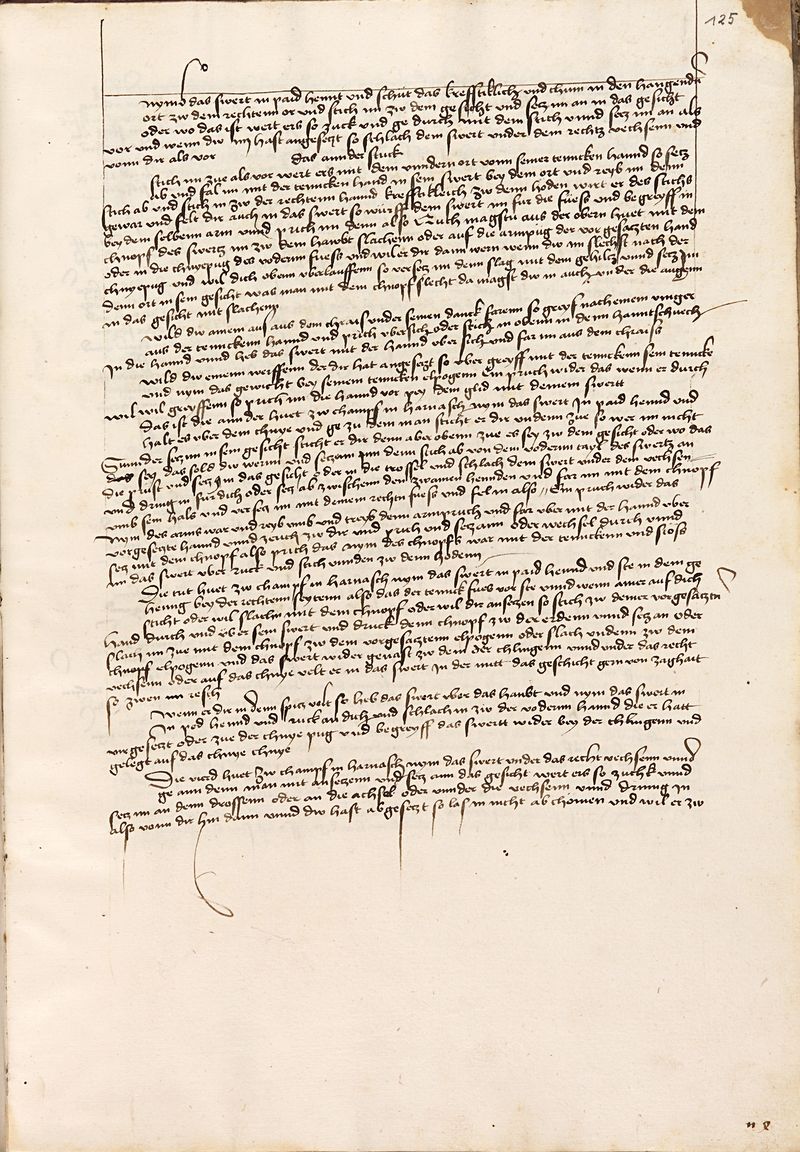 125
So
nymb das swert in paid hennt und schut das krefftiklich und chum in den hangenden
ort zw dem rechten or und stich im zw dem gesicht und setz im an in das gesicht
oder wo das ist wert ers so zuck und ge durch mit dem stich unnd setz im an als
vor und wenn dw im hast angesetzt so schlach dem swert under dem rechtz uechsenn und
vonn dir als vor das annder stuck
stich im zue als vor wert ers mit dem vindern ort vonn seiner tenncken hannd so setz
ab und fal im mit der tenncken hand in sein swert bey dem ort und reyb im denn
stich ab und stich in zw der rechtenn hannd krefftikleich zw denn hoden wirt er des stichs
gewar und felt dir auch in das swert so wurff dem swert im fur die fuess und begreyff in
bey dem selbenn arm unnd prich im denn also Auch magstu aus der obern huet mit dem
chnopf des swertz im zw dem hawbt slachenn oder auf die armpug der vor gesatzten hand
oder in die chnyepug des vodernn fuess und wil er dir dann wern wenn dw im slechst nach der
chnyepug und wil dich obenn uberlauffenn so versetz im denn slag mit dem gehiltz unnd setz im
denn ort in sein gesicht was man mit dem chnopf slecht da magst dw in auch under die augenn
in das gesicht mit slachenn
Wild dw ainem aus aus dem chrais under seinen danck farenn so greyf nach einem vinger
aus der tenncken hannd und prich ubersich oder stich in obenn in denn hanntschuech
in die hannd unnd heb das swert mit der hannd uber sich und far im aus dem chraiss
Wild dw einem weiffenn der dir hat angesetzt so uber greyff mit der tennckenn sein tenncke
und nym das gewicht bey seinem tenncken elpogenn Ein pruch wider das wenn er durch
wil wil greyffenn so prich im die hannd vor pey dem glid mit deinem swertt
Das ist die annder huet zw champf in harnasch nym das swert in paid hennd und
halt es uber dem chnye und ge zu dem man sticht er dir undenn zue so wer im nicht
Sunnder setz im in sein gesicht sticht er dir denn aber obenn zue es sey zw dem gesicht oder wo das
das sey das sold dw wernn und setz am im denn stich ab von dem vodernn tayl des swertz an
die prust und setz im das gesicht oder in die trossel und schlach dem swert under dem uechsen
und dring in fur dich oder setz ab zwischenn den zwainen hennden und far im mit dem chnopf
umb sein hals und versetz im mit deinem rechten fuess und fel in also Ein pruch wider das
nym des arms war und reyb umb und treyb denn armpruch und far uber mit der hannd uber
vorgesetzte hannd unnd zeuch zw dir und prich und setz ann oder wechsel durch unnd
setz mit dem chnopf also prich das nym des chnopfs war mit der tennckenn und stoss
im das swert uber ruck und stich unnden zw denn hodenn
Die trit huet zw champf in harnasch nym das swert in paid hennd und ste in dem ge
heng bey der rechtenn seytenn also das der tennck fueb vor ste unnd wenn ainer auf dich
sticht oder wil slachn mit dem chnopf oder wil dir ansetzen so stich zw deiner vorgesatztn
hand durch und uber sein swert und druck denn chnopf zw der erdenn unnd setz an oder
slach im zue mit dem chnopf zw dem vorgesatztenn elpogenn oder slach undenn zw dem
chnopf elpogenn und das swert wider gewast zw dem der chlingenn unnd under das recht
uechsenn oder auf das chnye velt er in das swert in der mitt das geschicht gern von zaghait
so zwen im resch
Wenn er dir in denn spitz volt so heb das swert uber das haubt und nym das swert in
in ped hennd und ruck an dich und schlach in zw der vodernn hannd die er hatt
vor gesetzt oder zue der chnye pug und begreyff das swertt wider bey der chlingenn und
gelegt auf das chnye chnye
Die vierd huet zw champf in harnasch nym das swert under das recht uechsenn unnd
ge ann denn man mit ansetzenn und setz ann das gesicht wert ers so zuckh unnd
setz im an denn drossenn oder an die achsel oder unnder die uechsenn unnd dring in
also vonn dir hin dann unnd dw hast abgesetzt so las in nicht ab chomen und wil er zw